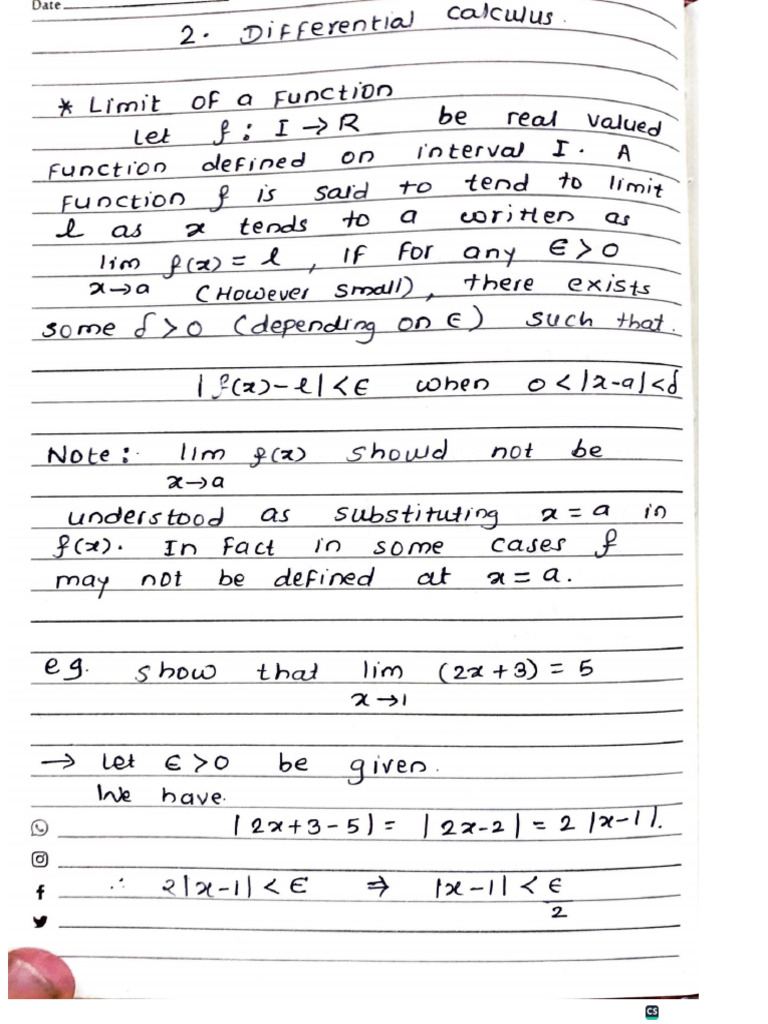 Date
2. Differential calculus.
* Limit of a Function
Let f : I → R be real valued
Function defined on interval I. A
Function f is said to tend to limit
l as x tends to a written as
lim f(x) = l , if for any ϵ > 0
x→a (However small), there exists
some δ > 0 (depending on ϵ) such that.
|f(x) - l| < ϵ when 0 < |x-a| < δ
Note : lim f(x) showd not be
x→a
understood as substituting x = a in
f(x). In fact in some cases f
may not be defined at x = a.
eg. show that lim (2x + 3) = 5
x→1
→ Let ϵ > 0 be given.
We have.
|2x+3-5| = |2x-2| = 2 |x-1|.
∴ 2|x-1| < ϵ ⇒ |x-1| < ϵ
2
CS